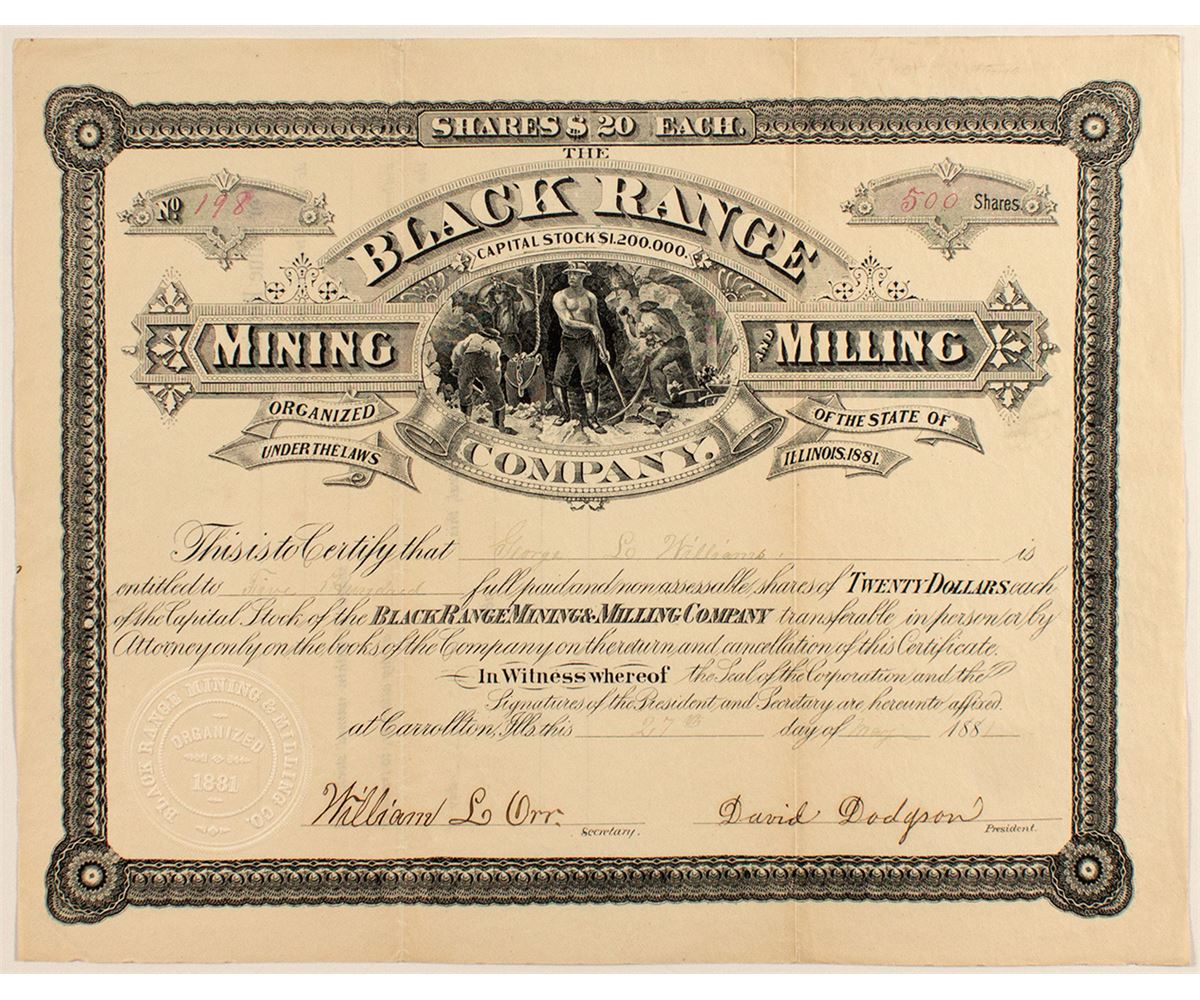 SHARES $ 20 EACH.
THE
No. 198
500 Shares
BLACK RANGE
CAPITAL STOCK $1.200.000.
MINING AND MILLING
COMPANY.
ORGANIZED
UNDER THE LAWS
OF THE STATE OF
ILLINOIS. 1881.
This is to Certify that George L Williams, is
entitled to Five Hundred full paid and non assessable shares of TWENTY DOLLARS each
of the Capital Stock of the BLACK RANGE MINING & MILLING COMPANY transferable in person or by
Attorney only on the books of the Company on the return and cancellation of this Certificate.
In Witness whereof the Seal of the Corporation and the
Signatures of the President and Secretary are hereunto affixed.
at Carrollton, Ills. this 27th day of May 1881
BLACK RANGE MINING & MILLING CO.
ORGANIZED
1881
William L Orr.
Secretary.
David Dodgson
President.